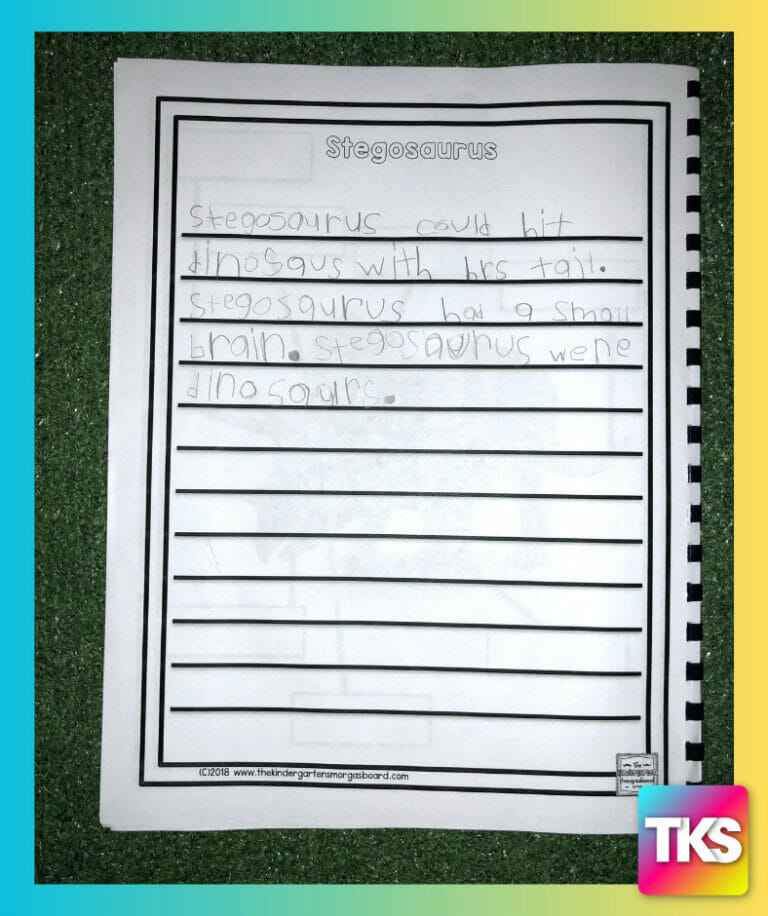 Stegosaurus
Stegosaurus could hit
dinosaus with hrs tail.
Stegosaurus had a small
brain. Stegosaurus were
dinosaurs.
(C)2018 www.thekindergartensmorgasboard.com
The
Kindergarten
Smorgasboard
TKS